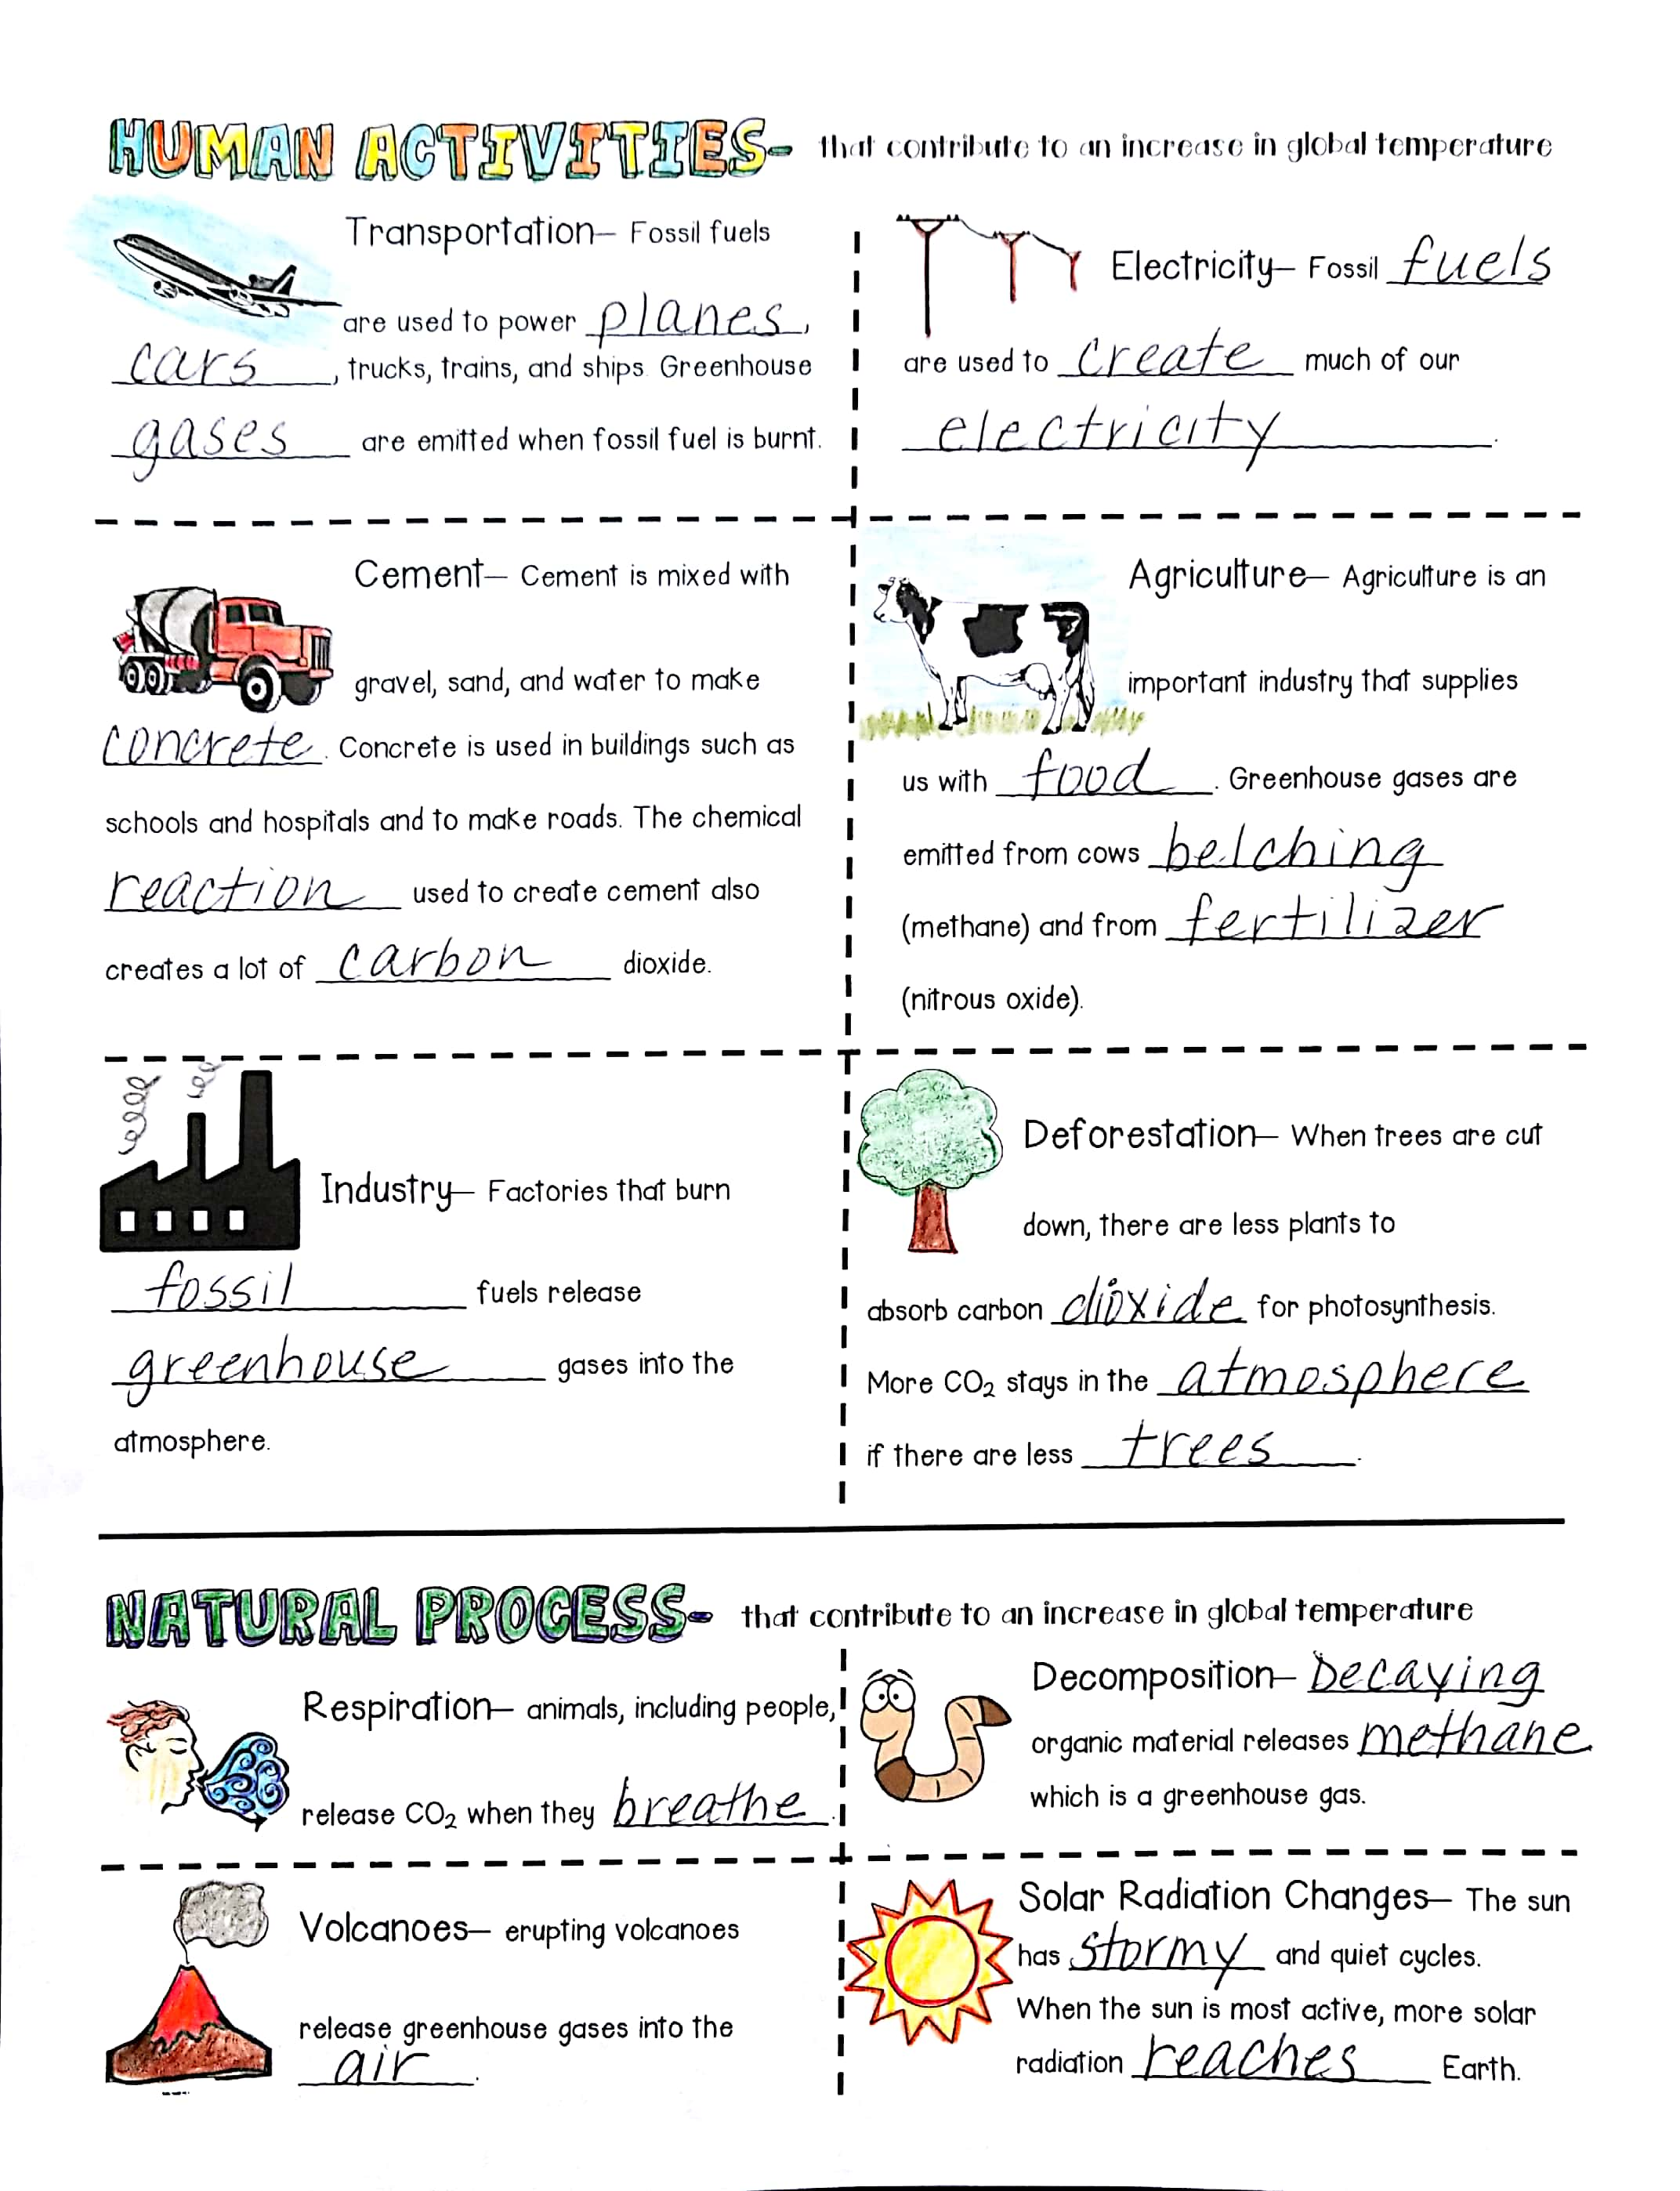 HUMAN ACTIVITIES- that contribute to an increase in global temperature
Transportation— Fossil fuels
are used to power planes,
cars, trucks, trains, and ships. Greenhouse
gases are emitted when fossil fuel is burnt.
Electricity— Fossil fuels
are used to create much of our
electricity.
Cement— Cement is mixed with
gravel, sand, and water to make
concrete. Concrete is used in buildings such as
schools and hospitals and to make roads. The chemical
reaction used to create cement also
creates a lot of carbon dioxide.
Agriculture— Agriculture is an
important industry that supplies
us with food. Greenhouse gases are
emitted from cows belching
(methane) and from fertilizer
(nitrous oxide).
Industry— Factories that burn
fossil fuels release
greenhouse gases into the
atmosphere.
Deforestation— When trees are cut
down, there are less plants to
absorb carbon dioxide for photosynthesis.
More CO₂ stays in the atmosphere
if there are less trees.
NATURAL PROCESS- that contribute to an increase in global temperature
Respiration— animals, including people,
release CO₂ when they breathe.
Decomposition— Decaying
organic material releases methane
which is a greenhouse gas.
Volcanoes— erupting volcanoes
release greenhouse gases into the
air.
Solar Radiation Changes— The sun
has stormy and quiet cycles.
When the sun is most active, more solar
radiation reaches Earth.